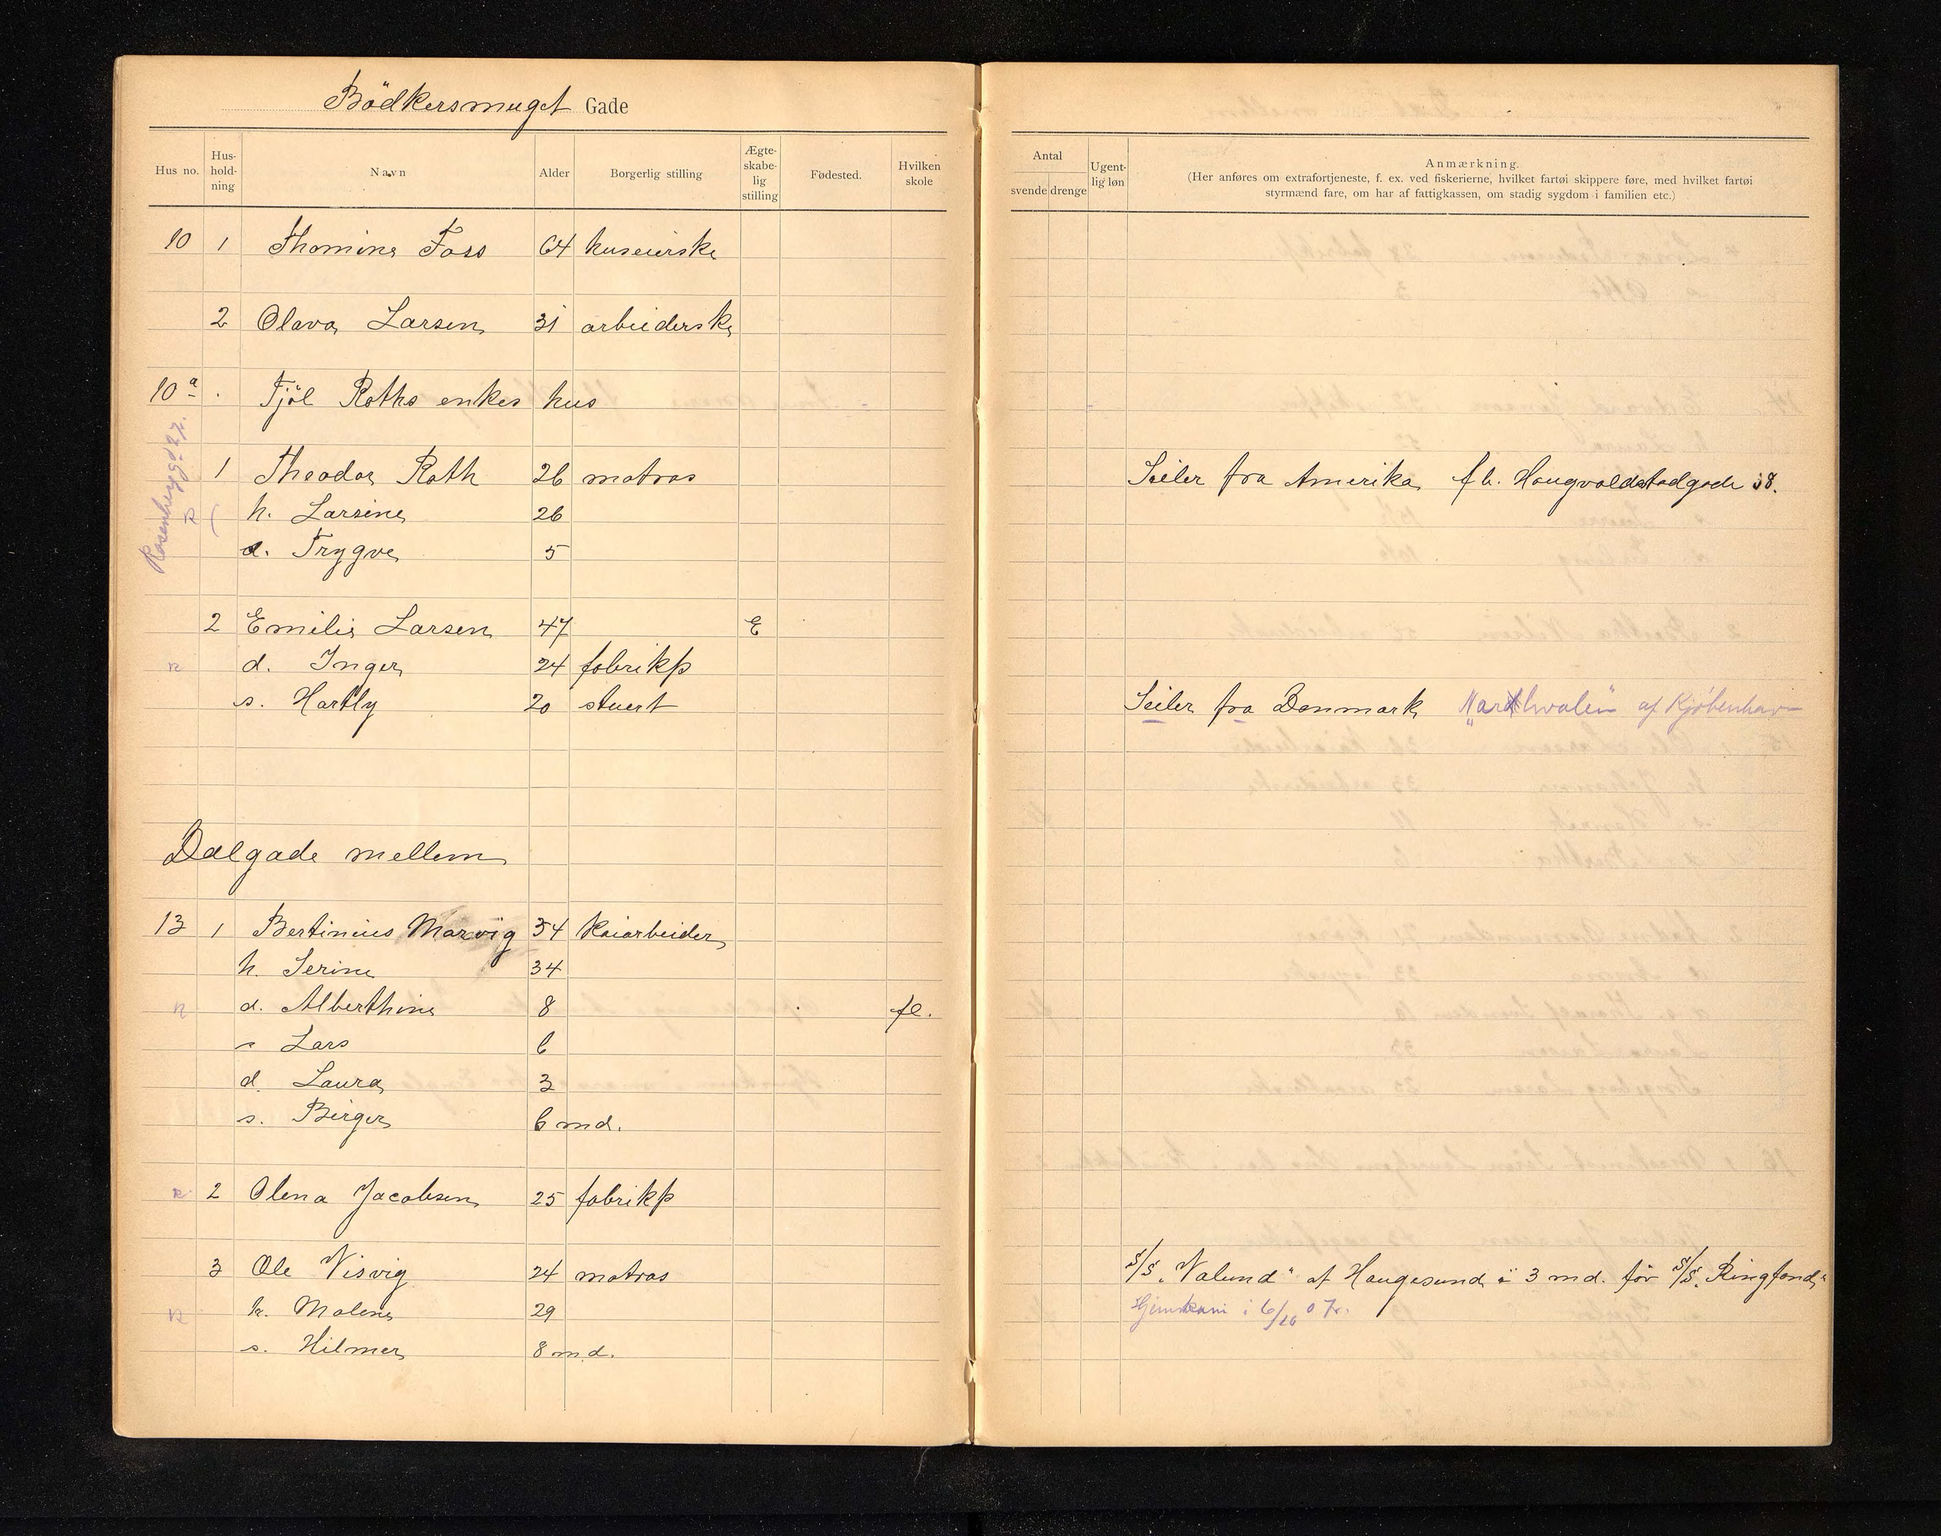 Bödkersmuget Gade
Hus no. Hus-hold-ning Navn Alder Borgerlig stilling Ægte-skabe-lig stilling Fødested. Hvilken skole
Antal svende drenge Ugent-lig løn Anmærkning.
(Her anføres om extrafortjeneste, f. ex. ved fiskerierne, hvilket fartøi skippere føre, med hvilket fartøi
styrmænd fare, om har af fattigkassen, om stadig sygdom i familien etc.)
10 1 Thomine Foss 64 huseierske
2 Olava Larsen 31 arbeiderske
10a . Fjöl Roths enkes hus
Rosenberggd 27.
1 Theodor Roth 26 matros Seiler fra Amerika fh. Haugvaldstadgade 38.
R h. Larsine 26
s. Trygve 5
2 Emilie Larsen 47 E
R d. Inger 24 fabrikp
s. Hartly 20 stuert Seiler fra Danmark "Nordhvalen" af Kjöbenhavn
Dalgade mellem
13 1 Bertinius Marvig 34 kaiarbeider
h. Serine 34
R d. Alberthine 8 fl.
s Lars 6
d. Laura 3
s. Birger 6 md.
R 2 Olena Jacobsen 25 fabrikp
3 Ole Visvig 24 matros S/S. "Valund" af Haugesund i 3 md. för S/S. Ringfond"
R h. Malene 29 Hjemkom i 6/10 07.
s. Hilmer 8 md.